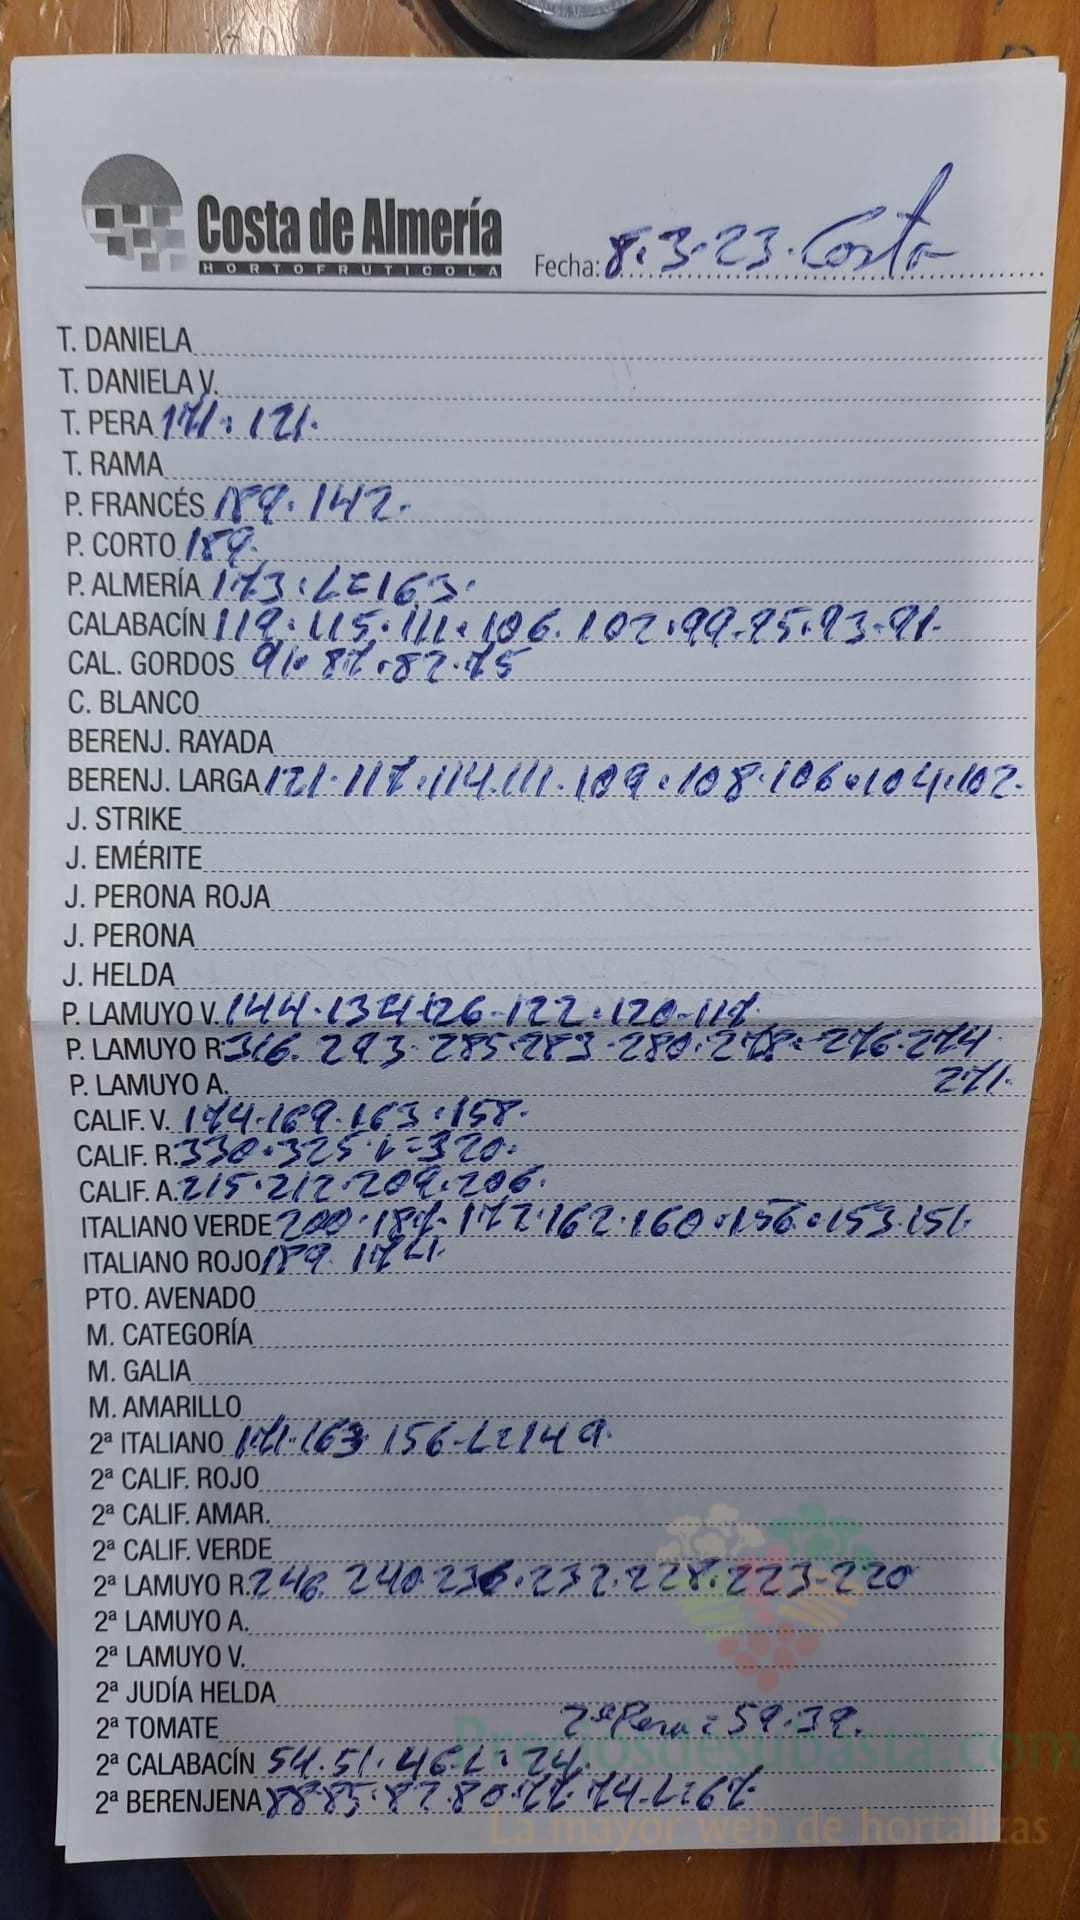 Costa de Almería
HORTOFRUTICOLA
Fecha: 8.3.23. Costa
T. DANIELA
T. DANIELA V.
T. PERA 171. 121.
T. RAMA
P. FRANCÉS 189. 142.
P. CORTO 189.
P. ALMERÍA 173. L=163.
CALABACÍN 119. 115. 111. 106. 102. 99. 95. 93. 91.
CAL. GORDOS 91. 87. 82. 75
C. BLANCO
BERENJ. RAYADA
BERENJ. LARGA 121. 117. 114. 111. 109. 108. 106. 104. 102.
J. STRIKE
J. EMÉRITE
J. PERONA ROJA
J. PERONA
J. HELDA
P. LAMUYO V. 144. 134. 126. 122. 120. 117.
P. LAMUYO R. 316. 293. 285. 283. 280. 278. 276. 274
P. LAMUYO A. 271.
CALIF. V. 174. 169. 163. 158.
CALIF. R. 330. 325. L=320.
CALIF. A. 215. 212. 209. 206.
ITALIANO VERDE 200. 187. 172. 162. 160. 156. 153. 151.
ITALIANO ROJO 189. 174.
PTO. AVENADO
M. CATEGORÍA
M. GALIA
M. AMARILLO
2ª ITALIANO 171. 163 156. L=149.
2ª CALIF. ROJO
2ª CALIF. AMAR.
2ª CALIF. VERDE
2ª LAMUYO R. 246. 240. 236. 232. 228. 223. 220
2ª LAMUYO A.
2ª LAMUYO V.
2ª JUDÍA HELDA
2ª TOMATE 2ª Pera = 59. 39.
Preciosdesubasta.com
2ª CALABACÍN 54. 51. 46. L=24.
2ª BERENJENA 88. 85. 82. 80. 77. 74. L=67.
La mayor web de hortalizas